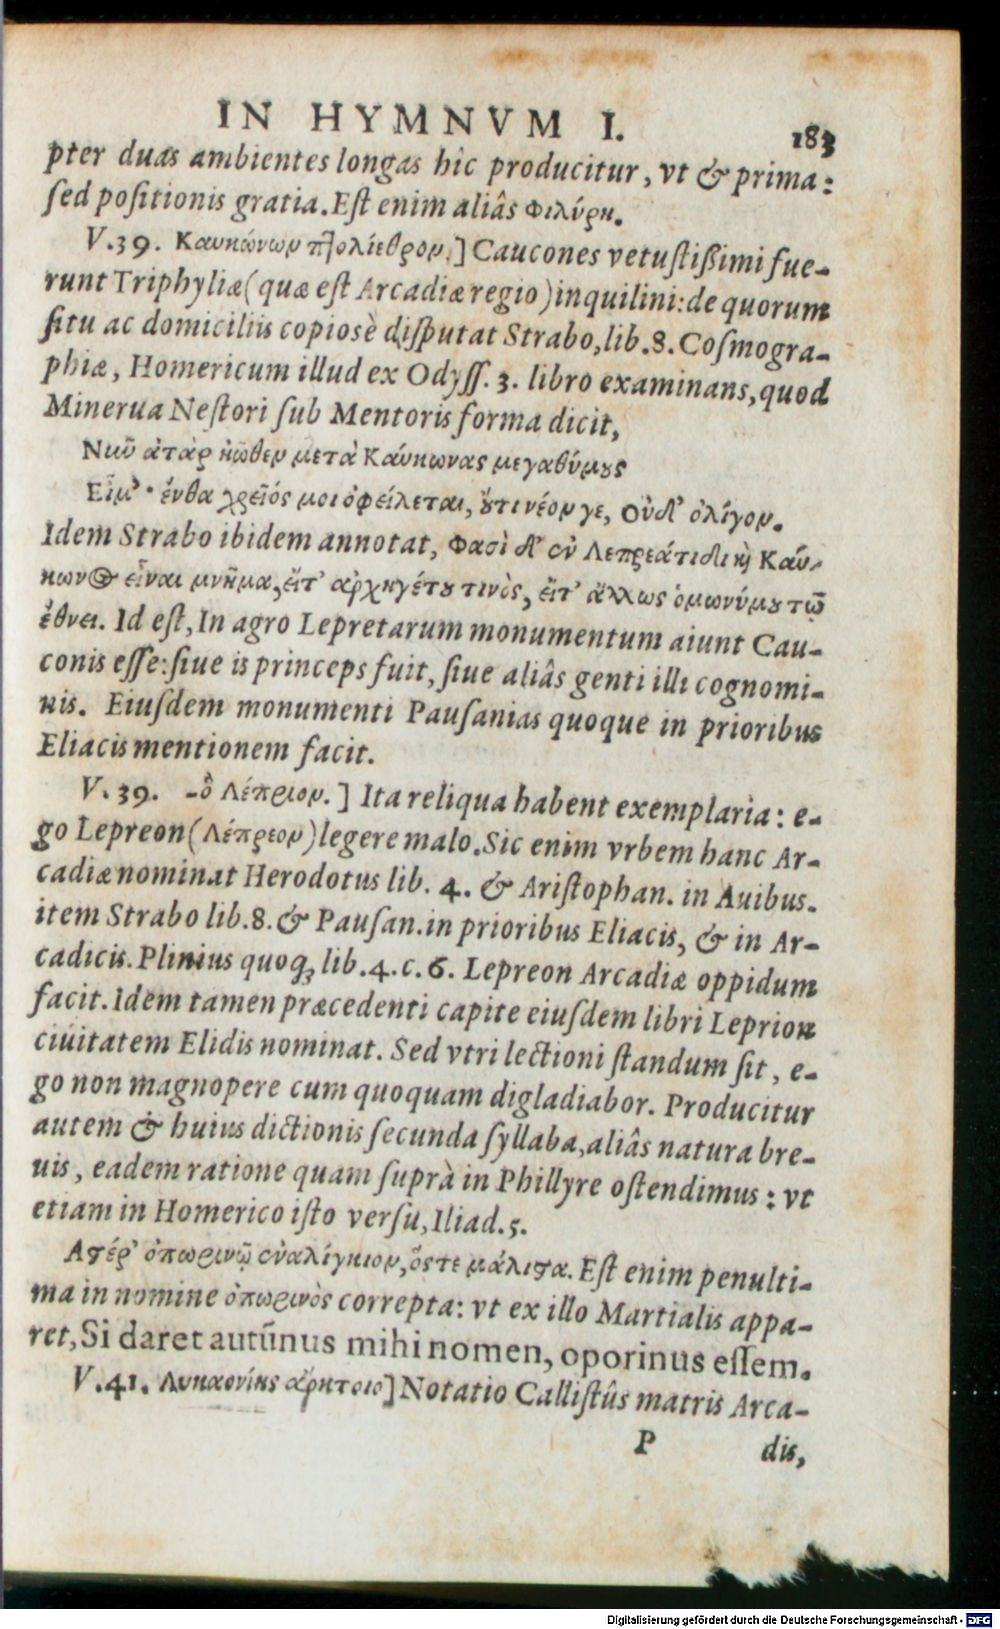 IN HYMNVM I. 183
pter duas ambientes longas hîc producitur, vt & prima:
sed positionis gratia. Est enim aliâs Φιλύρη.
V.39. Καυκώνων πτολίεθρον.] Caucones vetustißimi fue-
runt Triphyliæ (quæ est Arcadiæ regio) inquilini: de quorum
situ ac domiciliis copiosè disputat Strabo, lib. 8. Cosmogra-
phiæ, Homericum illud ex Odyss. 3. libro examinans, quod
Minerua Nestori sub Mentoris forma dicit,
Νιῦ ἀτὰρ ἠῶθεν μετὰ Καύκωνας μεγαθύμους
Εἶμ’· ἔνθα χρεῖός μοι ὀφείλεται, οὔτι νέον γε, Οὐδ’ ὀλίγον.
Idem Strabo ibidem annotat, Φασὶ δ’ ἐν Λεπρεάτιδι καὶ Καύ-
κωνος εἶναι μνῆμα, εἴτ’ ἀρχηγέτου τινὸς, εἴτ’ ἄλλως ὁμωνύμου τῷ
ἔθνει. Id est, In agro Lepretarum monumentum aiunt Cau-
conis esse: siue is princeps fuit, siue aliâs genti illi cognomi-
nis. Eiusdem monumenti Pausanias quoque in prioribus
Eliacis mentionem facit.
V.39. -ὃ Λέπριον.] Ita reliqua habent exemplaria: e-
go Lepreon (Λέπρεον) legere malo. Sic enim vrbem hanc Ar-
cadiæ nominat Herodotus lib. 4. & Aristophan. in Auibus.
item Strabo lib. 8. & Pausan. in prioribus Eliacis, & in Ar-
cadicis. Plinius quoq; lib. 4. c. 6. Lepreon Arcadiæ oppidum
facit. Idem tamen præcedenti capite eiusdem libri Leprion
ciuitatem Elidis nominat. Sed vtri lectioni standum sit, e-
go non magnopere cum quoquam digladiabor. Producitur
autem & huius dictionis secunda syllaba, aliâs natura bre-
uis, eadem ratione quam suprà in Phillyre ostendimus: vt
etiam in Homerico isto versu, Iliad. 5.
Ἀστέρ’ ὀπωρινῷ ἐναλίγκιον, ὅστε μάλιστα. Est enim penulti-
ma in nomine ὀπωρινὸς correpta: vt ex illo Martialis appa-
ret, Si daret autūnus mihi nomen, oporinus essem.
V.41. Λυκαονίης ἄρκτοιο] Notatio Callistûs matris Arca-
P dis,
Digitalisierung gefördert durch die Deutsche Forschungsgemeinschaft - DFG